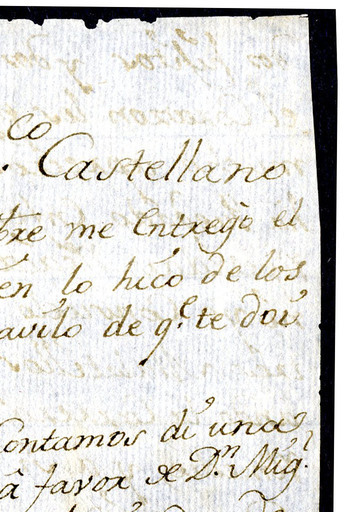 co
. Castellano
bre me Entregò el
en lo hiço de los
avilo de q.e te doi
Contamos di unas
â favor de D.n Mig.l